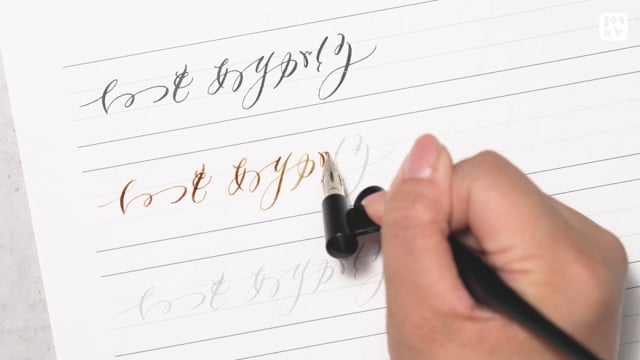 いつも ありがとう
いつも ありがとう
いつも ありが